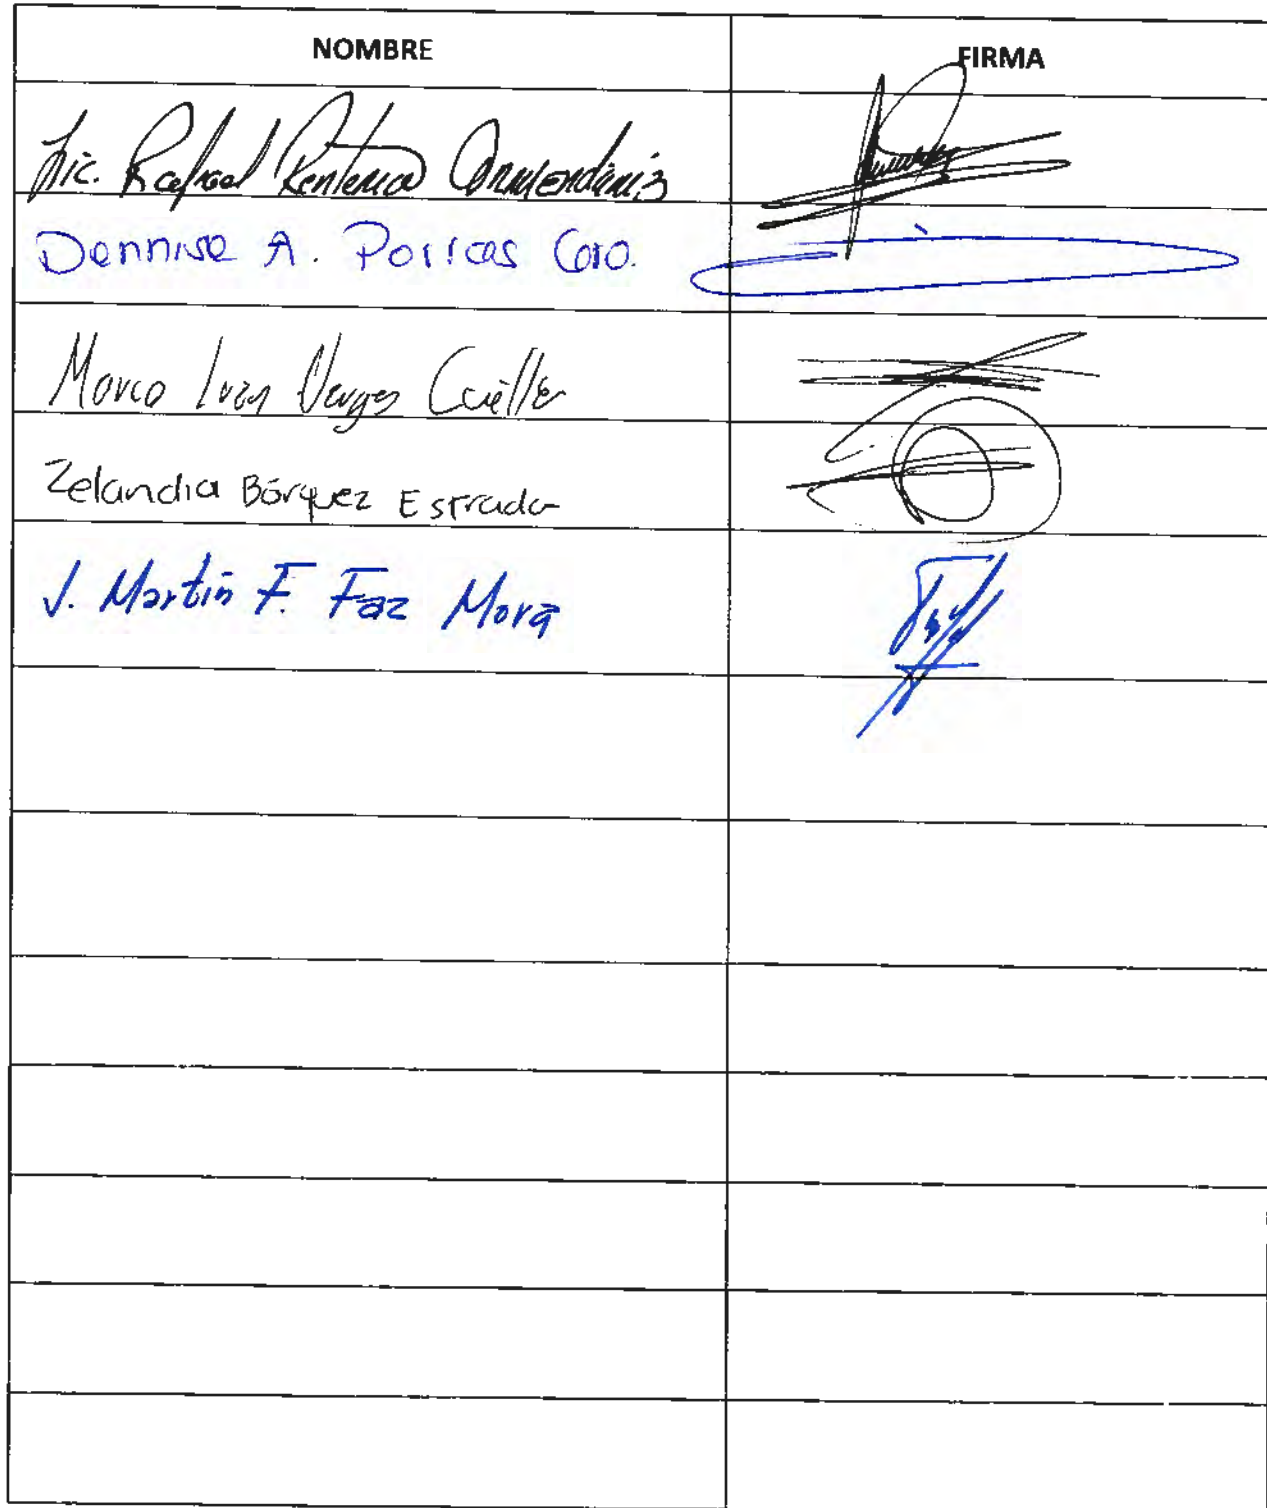 NOMBRE FIRMA
Lic. Rafael Renteria Armendáriz
Dennise A. Porras Coro.
Marco Ivan Vargas Cuéllar
Zelandia Bórquez Estrada
J. Martín F. Faz Mora